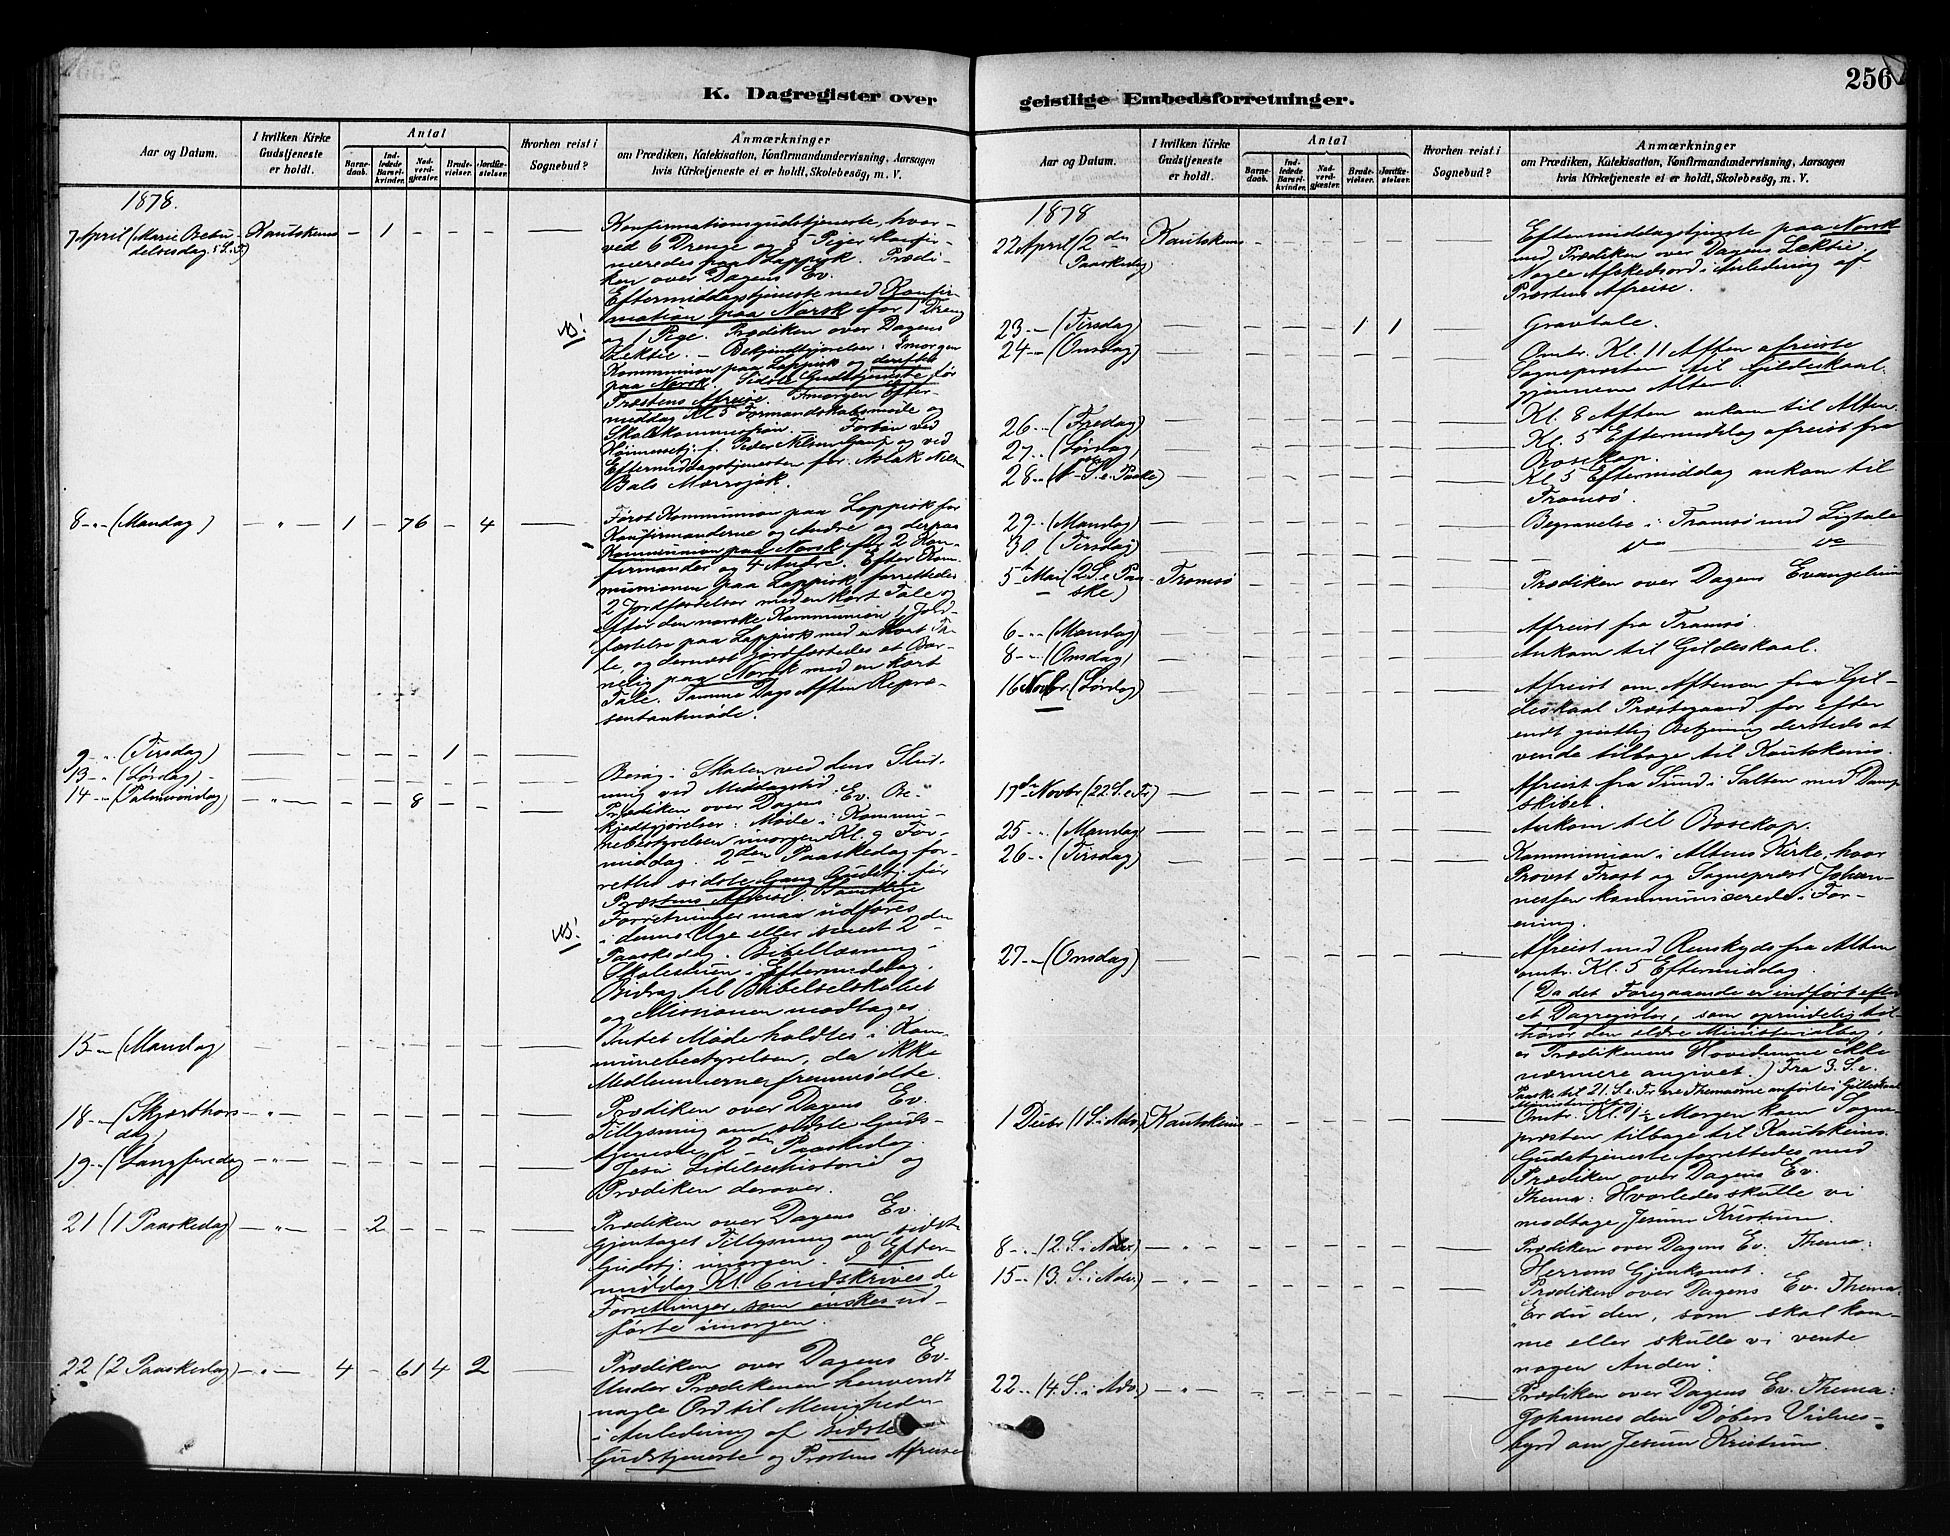 256
K. Dagregister over
geistlige Embedsforretninger.
Aar og Datum.
I hvilken Kirke Gudstjeneste er holdt.
Antal
Barnedaab.
Indledede Barselkvinder.
Nadverdgjæster.
Brudevielser.
Jordfæstelser.
Hvorhen reist i Sognebud?
Anmærkninger
om Prædiken, Katekisation, Konfirmandundervisning, Aarsagen
hvis Kirketjeneste ei er holdt, Skolebesøg, m. V.
1878.
7 April (Marie Bebu- Kautokeino - 1 - - -
delsesdag 5 S. i F)
Konfirmationsgudstjeneste, hvor-
ved 6 Drenge og 8 Piger konfir-
meredes paa Lappisk. Prædi-
ken over Dagens Ev.
Eftermiddagstjeneste med Konfir-
mation paa Norsk for 1 Dreng
NB! og 1 Pige. Prædiken over Dagens
Lektie. - Bekjendtgjørelser: Imorgen
Kommunion paa Lappisk og derefter
paa Norsk. Sidste Gudstjeneste før
Præstens Afreise. Imorgen Efter-
middag Kl 5 Formandskabsmøde og
Skolekommission. - Forbøn ved
f. Peder Nilsen Gaup og ved
Eftermiddagstjenesten for Aslak Nils-
Bals
8 - " - (Mandag) - " - 1 - 76 - 4
Først Kommunion paa Lappisk for
Konfirmanderne og Andre og derpaa
Kommunion paa Norsk for 2 Kon-
firmander og 4 Andre. Efter Kom-
munionen paa Lappisk forrettedes
2 Jordfæstelser med en kort Tale og
efter den norske Kommunion 1 Jord-
fæstelse paa Lappisk med en kort Ta-
le, og dernæst jordfæstedes et Bar-
nelig paa Norsk med en kort
Tale. Samme Dags Aften Repræ-
sentantmøde.
9 - " (Tirsdag) - - - - 1 -
13 - " (Lørdag) -
Besøg i Skolen ved dens Slut-
ning ved Middagstid.
14 - " (Palmesøndag) - " - - - 8 - -
Prædiken over Dagens Ev. Be-
kjendtgjørelser: Møde i Kommu-
nebestyrelsen imorgen Kl. 9 For-
middag. 2den Paaskedag for-
rettes sidste Gang Gudstj. før
Præstens Afreise. Samtlige
Forretninger maa udføres
NB! i denne Uge eller senest 2den
Paaskedag. Bibellæsning i
Skolestuen i Eftermiddag.
Bidrag til Bibelselskabet
og Missionen modtages.
15 - " (Mandag)
Intet Møde holdtes i Kom-
munebestyrelsen, da ikke
Medlemmerne fremmødte.
18 - " (Skjærthors- - " -
dag)
Prædiken over Dagens Ev.
Tillysning om sidste Guds-
tjeneste 2den Paaskedag.
19 - " (Langfredag - " -
Jesu Lidelseshistorie og
Prædiken derover.
21 (1 Paaskedag) - " - - 2 - - -
Prædiken over Dagens Ev.
Gjentaget Tillysning om sidste
Gudstj. imorgen. I Efter-
middag Kl. 6 indskrives de
Forretninger, som ønskes ud-
førte imorgen.
22 (2 Paaskedag) - " - 4 - 61 4 2
Prædiken over Dagens Ev.
Under Prædikenen henvendt
nogle Ord til Menigheden
i Anledning af sidste
Gudstjeneste og Præstens Afreise
Aar og Datum.
I hvilken Kirke Gudstjeneste er holdt.
Antal
Barnedaab.
Indledede Barselkvinder.
Nadverdgjæster.
Brudevielser.
Jordfæstelser.
Hvorhen reist i Sognebud?
Anmærkninger
om Prædiken, Katekisation, Konfirmandundervisning, Aarsagen
hvis Kirketjeneste ei er holdt, Skolebesøg, m. V.
1878
22 April (2den Kautokeino
Paaskedag)
Eftermiddagstjeneste paa Norsk
med Prædiken over Dagens Lektie.
Nogle Afskedsord i Anledning af
Præstens Afreise.
23 - " (Tirsdag) - - - - 1 1
Gravtale.
24 - " (Onsdag)
Omtr. Kl. 11 Aften afreiste
Sognepræsten til Gildeskaal
gjennem Alten
26 - " (Fredag)
Kl. 8 Aften ankom til Alten.
27 - " (Lørdag)
Kl. 5 Eftermiddag afreist fra
Bosekop.
28 - " (1ste S. e. Paaske)
Kl 5 Eftermiddag ankom til
Tromsø.
29 - " (Mandag)
Begravelse i Tromsø med Ligtale
30 - " (Tirsdag)
do do
5te Mai (2 S. e. Paa- Tromsø
ske)
Prædiken over Dagens Evangelium
6 - " (Mandag)
Afreist fra Tromsø.
8 - " (Onsdag)
Ankom til Gildeskaal.
16 Novbr. (Lørdag)
Afreist om Aftenen fra Gil-
deskaal Præstegaard for efter
endt geistlig Betjening dersteds at
vende tilbage til Kautokeino.
17de Novbr (22 S. e. Tr.)
Afreist fra Sund i Salten med Damp-
skibet.
25 - " (Mandag)
Ankom til Bosekop.
26 - " (Tirsdag)
Kommunion i Altens Kirke, hvor
Provst Trost og Sognepræst Johan-
nessen kommunicerede i For-
ening.
27 - " (Onsdag)
Afreist med Renskyds fra Alten
omtr. Kl. 5 Eftermiddag.
(Da det Foregaaende er indført efter
et Dagregister, som oprindelig til-
hører den ældre Ministerialbog,
er Prædikenens Hovedemne ikke
nærmere angivet.) Fra 3. S. e.
Paaske til 21. S. e. Tr. ere Themaerne anførte i Gildeskaal
Ministerialbog
1 Decbr (1 S. i Adv.) Kautokeino
Omtr. Kl. 1½ Morgen kom Sogne-
præsten tilbage til Kautokeino.
Gudstjeneste forrettedes med
Prædiken over Dagens Ev.
Thema: Hvorledes skulle vi
modtage Jesum Kristum.
8 - " (2. S. i Adv.) - " -
Prædiken over Dagens Ev. Thema:
Herrens Gjenkomst.
15 - " (3. S. i Adv.) - " -
Prædiken over Dagens Ev. Thema:
"Er du den, som skal kom-
me eller skulle vi vente
nogen Anden".
22 - " (4. S. i Adv.) - " -
Prædiken over Dagens Ev. Thema:
Johannes den Døbers Vidnes-
byrd om Jesum Kristum.